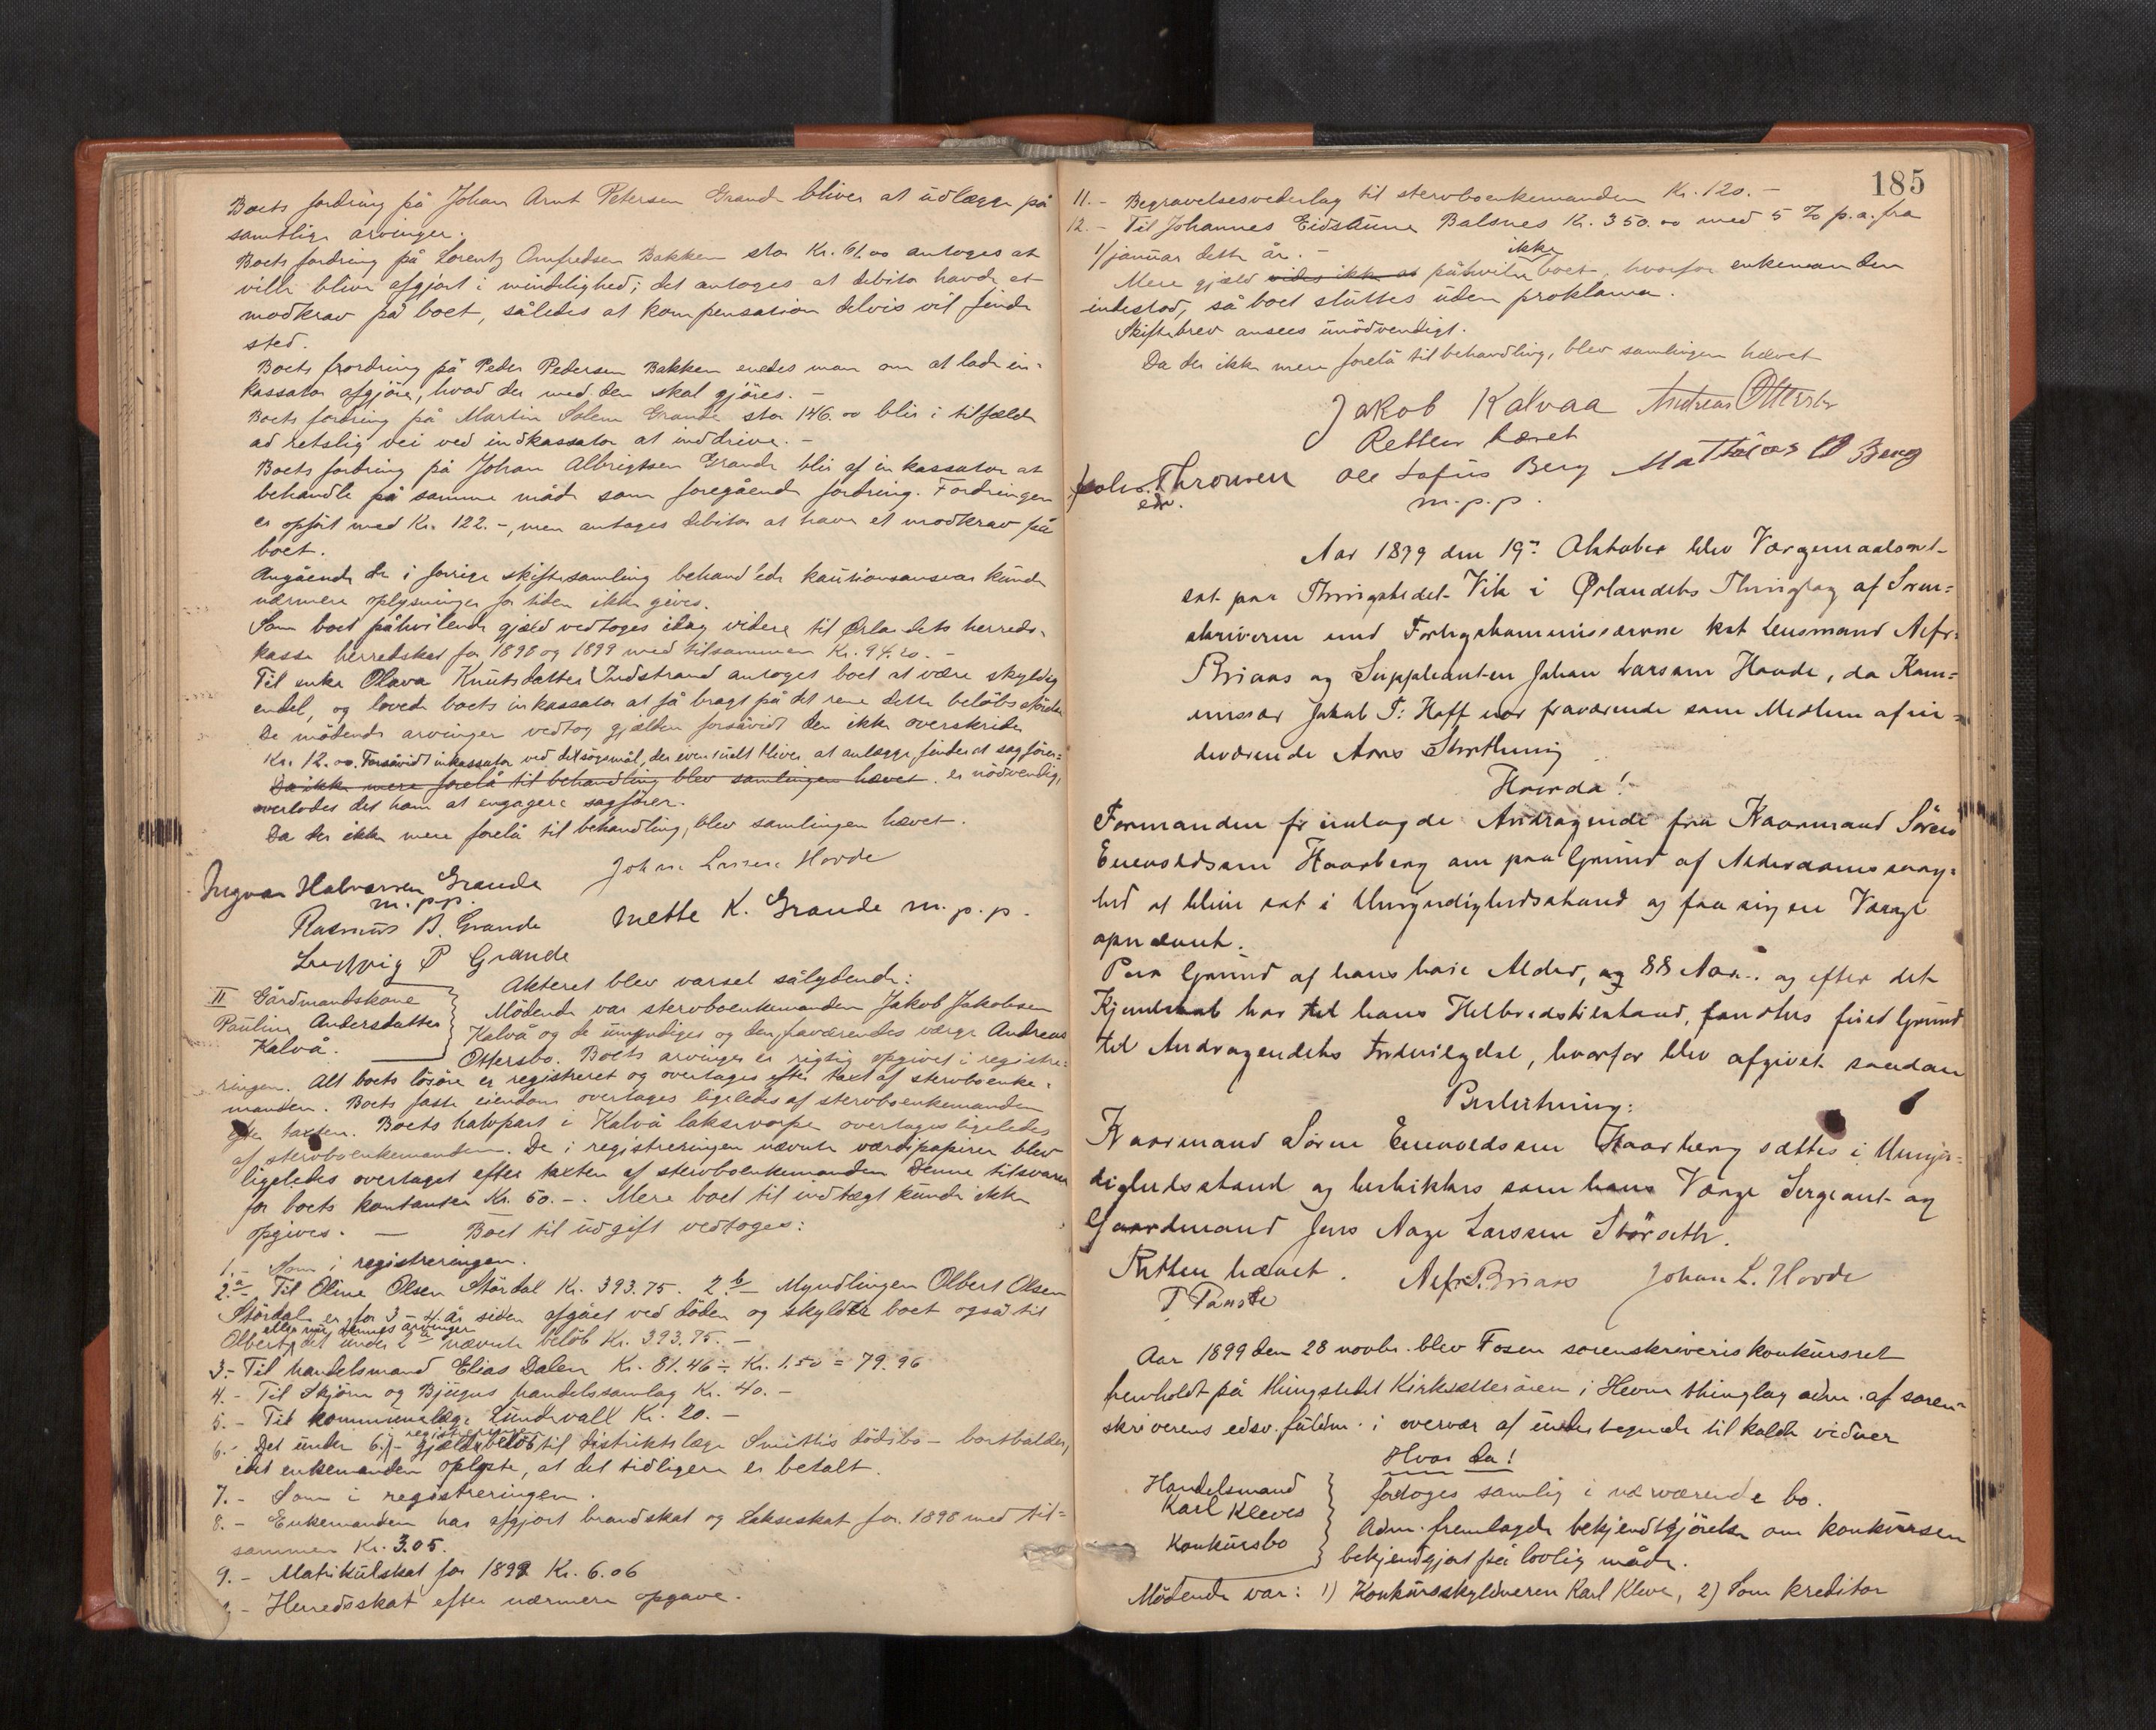 Boets fordring på Johan Arnt Petersen Grande bliver at udlægge på
samtlige arvinger.
Boets fordring på Lorentz Arnfredsen Bakken stor Kr. 61.00 antoges at
ville blive afgjort i mindelighed; det antages at debitor havde et
modkrav på boet, således at kompensation delvis vil finde
sted.
Boets frordring på Peder Pedersen Bakken enedes man om at lade in-
kassator afgjöre, hvad der med den skal gjöres. -
Boets fordring på Martin Solem Grande stor 146.00 blir i tilfælde
ad retslig vei ved indkassator at inddrive. -
Boets fordring på Johan Albrigtsen Grande blir af inkassator at
behandle på samme måde som foregående fordring. Fordringen
er opfört med Kr. 122. -, men antages debitor at have et modkrav på
boet.
Angående de i forrige skiftesamling behandlede kautionsansvar kunde
nærmere oplysninger for tiden ikke gives.
Som boet påhvilende gjæld vedtoges idag videre til Ørlandets herreds-
kasse herredskat for 1898 og 1899 med tilsammen Kr. 94.20. -
Til enke Olava Knutsdatter Indstrand antoges boet at være skyldig
endel, og lovede boets inkassator at få bragt på det rene dette belöbs störrelse
De mödende arvinger vedtog gjælden forsåvidt den ikke overskrider
Kr. 12.00. Forsåvidt inkassator ved det sögsmål, der eventuelt bliver at anlægge finder at sagförer-
Da ikke mere forelå til behandling blev samlingen hævet. er nödvendig,
overlodes det ham at engagere sagförer.
Da der ikke mere forelå til behandling, blev samlingen hævet.
Ingvar Halvorsen Grande Johan Larsen Hovde
m.p.p.
Rasmus B. Grande Mette K. Grande m.p.p.
Ludvig P Grande
II Gårdmandskone
Pauline Andersdatter
Kalvå.
Akteret blev varsel sålydende:
Mödende var stervboenkemanden Jakob Jakobsen
Kalvå og de umyndiges og den faværendes værge Andreas
Ottersbo. Boets arvinger er rigtig opgivet i registre-
ringen. Alt boets lösöre er registreret og overtages efter taxt af stervboenke-
manden. Boets faste eiendom overtages ligeledes af stervboenkemanden
efter taxten. Boets halvpart i Kalvå laksevorpe overtages ligeledes
af stervboenkemanden. De i registreringen nævnte værdipapirer blev
ligeledes overtaget efter taxten af stervboenkemanden Denne tilsvarer
for boets kontanter Kr. 50. -. Mere boet til indtægt kunde ikke
opgives. — Boet til udgift vedtoges:
1. - Som i registreringen.
2.a - Til Oline Olsen Stördal Kr. 393.75. 2.b - Myndlingen Olbert Olsen
Stördal er for 3 - 4 år siden afgået ved döden og skylder boet også til
eller rur. dennes arvinger
Olbert det under 2a nævnte belöb Kr. 393.75. -
3. - Til handelsmand Elias Dalen Kr. 81.46 ÷ Kr. 1.50 = 79.96
4. - Til Skjörn og Bjugns handelssamlag Kr. 40. -
5. - Til kommunelæge Lundevall Kr. 20. -
6. - Det under 6. registrerede gjældsbelöb til distriktslæge Smitths dödsbo - bortfalder,
idet enkemanden oplyste, at det tidligere er betalt.
7. - Som i registreringen.
8. - Enkemanden har afgjort brandskat og Lakseskat for 1898 med til-
sammen Kr. 3.05.
9. - Matrikulskat for 1899 Kr. 6.06
- Herredsskat efter nærmere opgave.
185
11. - Begravelsesvederlag til stervboenkemanden Kr. 120. -
12. - Til Johannes Eidsaune Balsnes Kr. 350.00 med 5 % p.a. fra
1/januar dette år. -
ikke
Mere gjæld vides ikke at påhvile boet, hvorfor enkemanden
indestod, så boet sluttes uden proklama.
Skiftebrev ansees unödvendigt.
Da der ikke mere forelå til behandling, blev samlingen hævet
Jakob Kalvaa Andreas Ottersbo
Retten hævet
Throuven Ole Lofus Berg Mathias O Berg
edv. m.p.p.
Aar 1899 den 19de Oktober blev Værgemaalsret
sat paa Thingstedet Vik i Ørlandets Thinglag af Soren-
skriveren med Forligskommissærerne kst Lensmand Alfr.
Briaas og Suppleanten Johan Larsen Hovde, da Kom-
missær Jakob T. Hoff var fraværende som Medlem af in-
deværende Aars Storthing
Hvorda!
Formanden fremlagde Andragende fra Kaarmand Sören
Enevoldsen Haarberg om paa Grund af Alderdomssvag-
hed at blive sat i Umyndighedsstand og faa sig en Værge
opnævnt.
Paa Grund af hans høie Alder, og 88 Aar. og efter det
Kjendskab har til hans Helbredstilstand, fandtes föiet Grund
til Andragendets Indvilgelse, hvorfor blev afgivet saadan
Beslutning:
Kaarmand Sören Enevoldsen Haarberg sættes i Umyn-
dighedsstand og beskikkes som hans Værge Sergeant og
Gaardmand Jens Aage Larssen Störseth.
Retten hævet. Alfr. Briaas Johan L. Hovde
T Panske
Aar 1899 den 28 novbr. blev Fosen sorenskriveris konkursret
henholdt på thingstedet Kirksæterören i Hevne thinglag adm. af soren-
skriverens edsv. fuldm. i overvær af undertegnede tilkaldte vidner
Hvor da!
Handelsmand
Karl Kleves
Konkursbo
foretoges samling i nærværende bo.
Adm. fremlagde bekjendtgjörelse om konkursen
bekjendtgjort på lovlig måde.
Mödende var: 1) Konkursskyldneren Karl Kleve, 2) Som kreditor